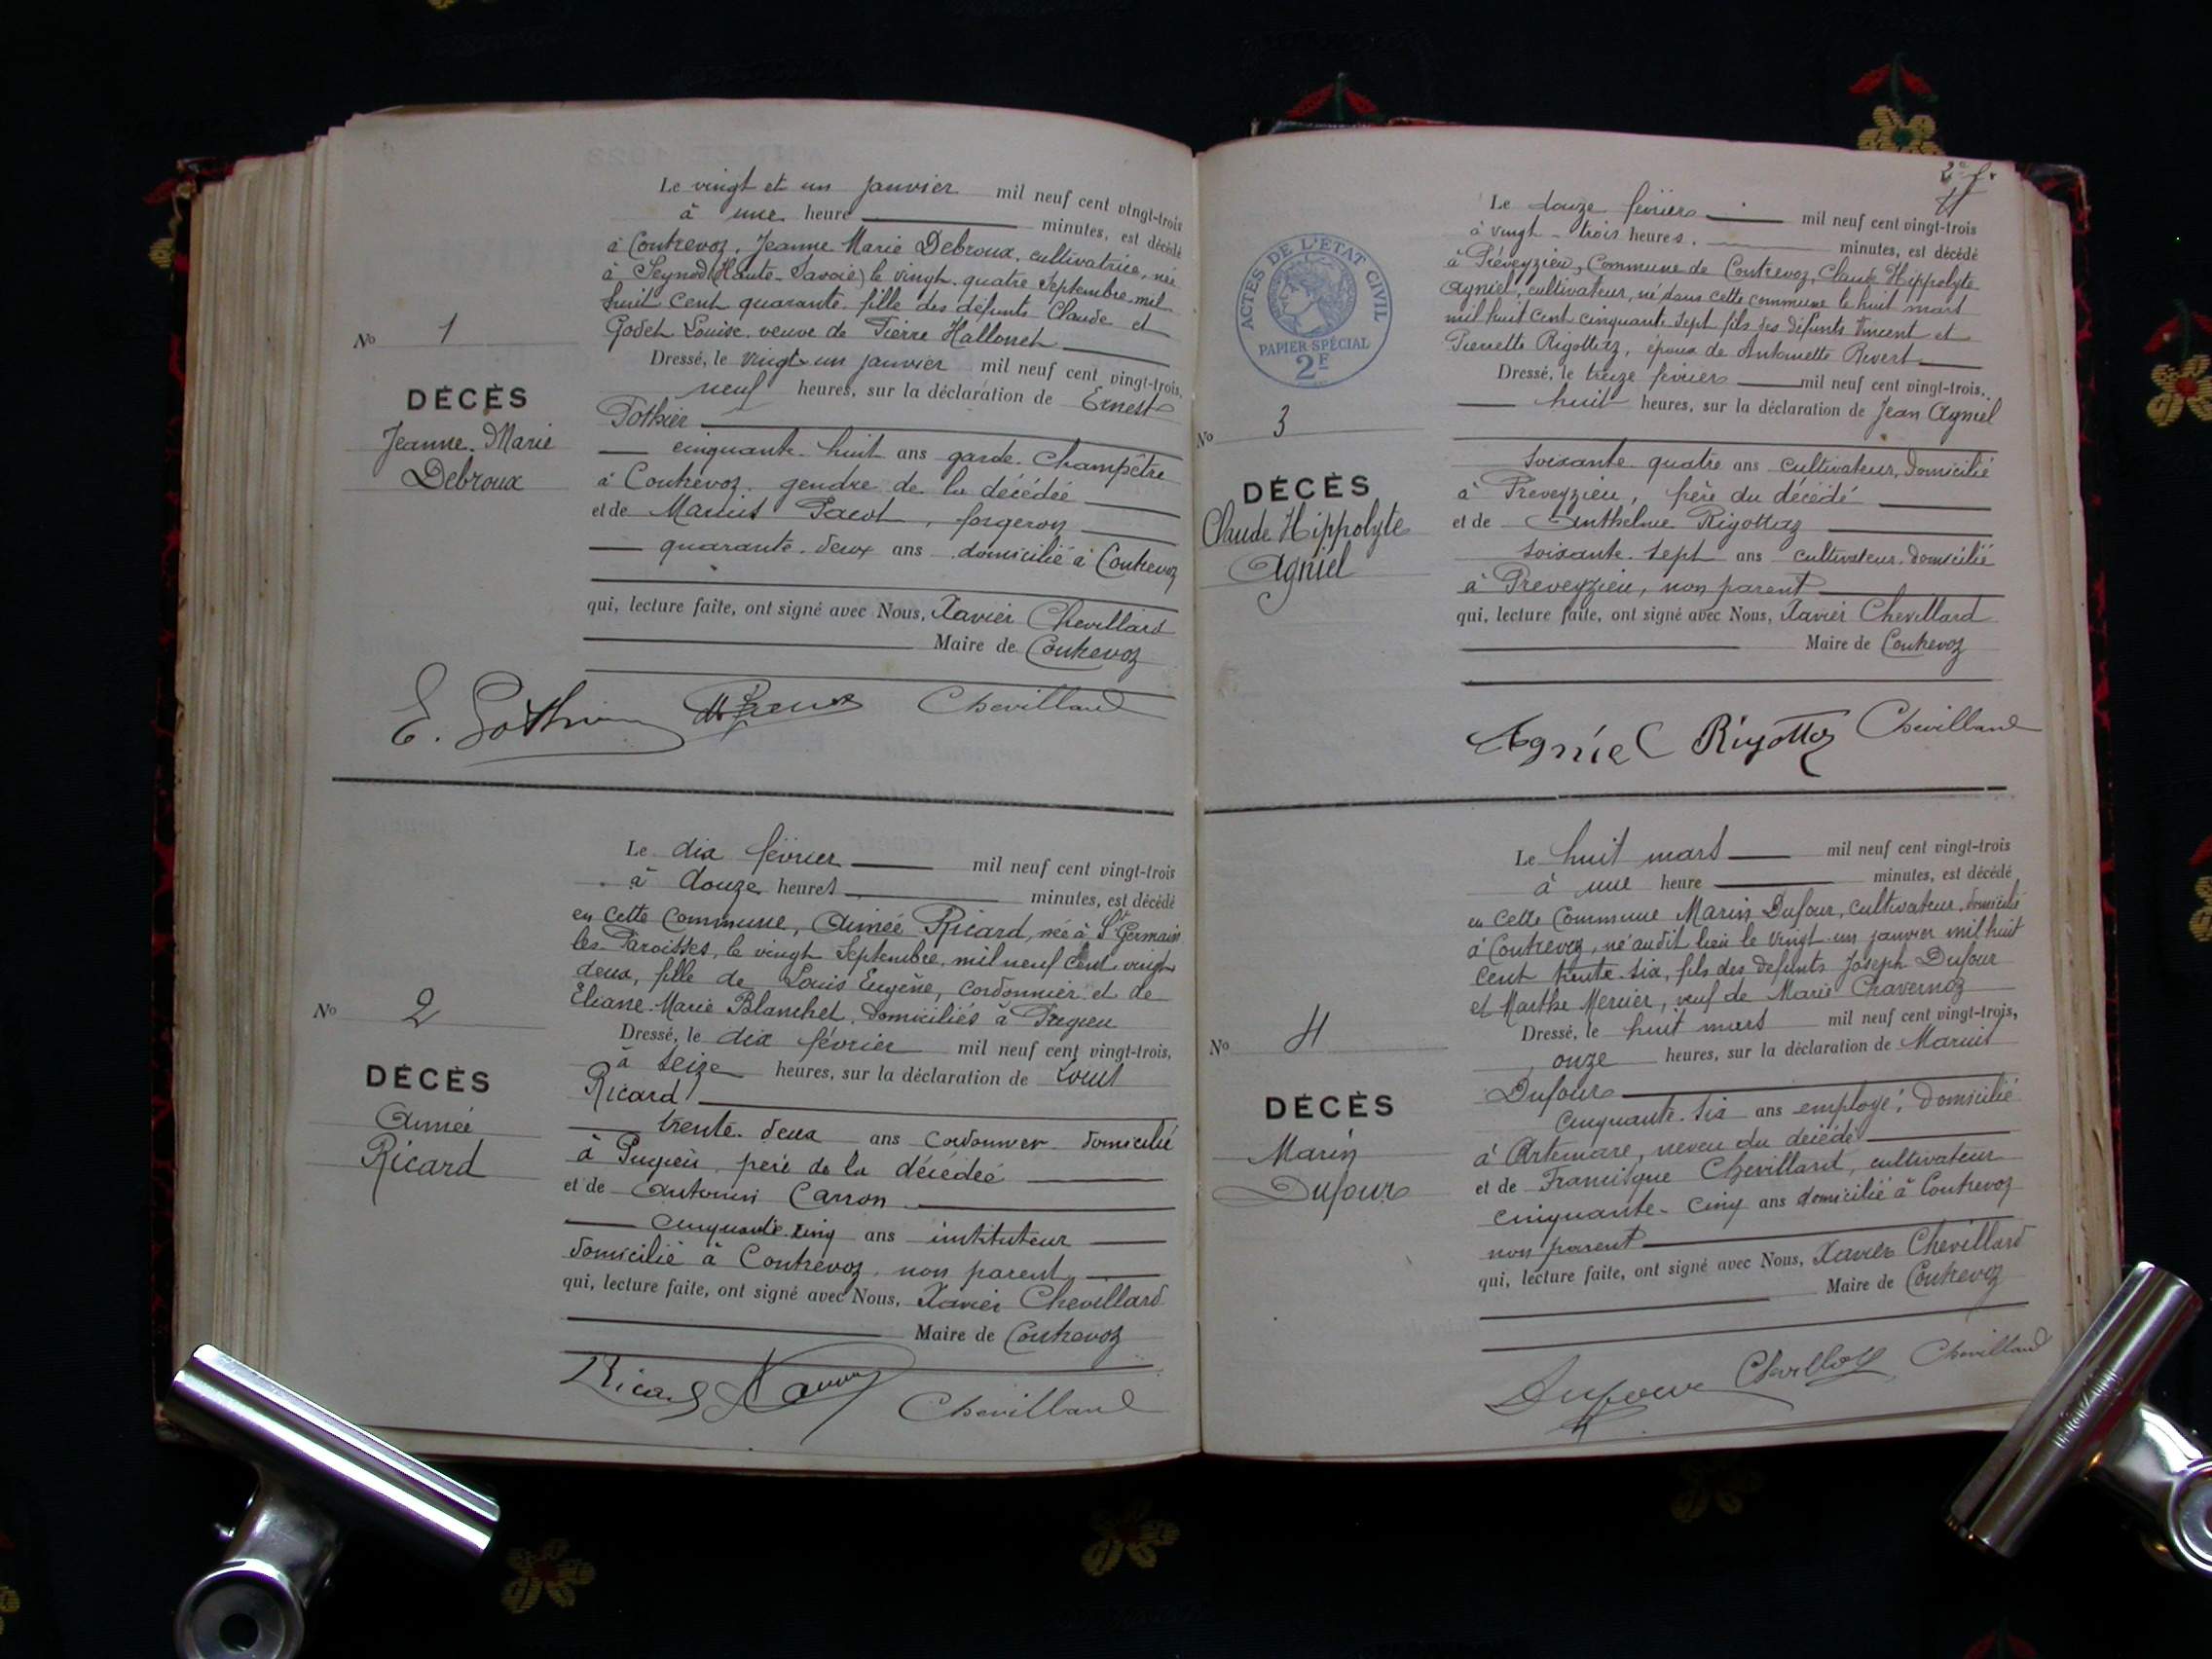 Le vingt et un janvier mil neuf cent vingt-trois
à une heure minutes, est décédé
à Contrevoz, Jeanne Marie Debroux, cultivatrice, née
à Seynod (Haute-Savoie) le vingt-quatre Septembre mil
huit cent quarante fille des défunts Claude et
Godet Louise veuve de Pierre Hallonet
No 1
DÉCÈS
Jeanne-Marie
Debroux
Dressé, le vingt-un janvier mil neuf cent vingt-trois,
neuf heures, sur la déclaration de Ernest
Pothier
cinquante-huit ans garde-Champêtre
à Contrevoz, gendre de la décédée
et de Marius Pacot, forgeron
quarante-deux ans domicilié à Contrevoz
qui, lecture faite, ont signé avec Nous, Xavier Chevillard
Maire de Contrevoz
E. Pothier Chevillard
Le dix février mil neuf cent vingt-trois
à douze heures minutes, est décédé
en cette commune, Aimée Ricard, née à St Germain
les Paroisses, le vingt Septembre, mil neuf cent vingt
deux, fille de Louis Eugène, cordonnier et de
Eliane-Marie Blanchet, domiciliés à Pugieu
No 2
DÉCÈS
Aimée
Ricard
Dressé, le dix février mil neuf cent vingt-trois,
à seize heures, sur la déclaration de Louis
Ricard
trente-deux ans cordonnier domicilié
à Pugieu, père de la décédée
et de Antonin Carron
cinquante-cinq ans instituteur
domicilié à Contrevoz, non parent,
qui, lecture faite, ont signé avec Nous, Xavier Chevillard
Maire de Contrevoz
Ricard Chevillard
2e f.
ACTES DE L'ÉTAT CIVIL
PAPIER SPÉCIAL
2F
Le douze février mil neuf cent vingt-trois
à vingt-trois heures. minutes, est décédé
à Préveyzieu, Commune de Contrevoz, Claude Hippolyte
Agniel, cultivateur, né dans cette commune le huit mars
mil huit cent cinquante-sept fils des défunts Vincent et
Pierrette Rigottaz, époux de Antoinette Revert
No 3
DÉCÈS
Claude Hippolyte
Agniel
Dressé, le treize février mil neuf cent vingt-trois,
huit heures, sur la déclaration de Jean Agniel
soixante-quatre ans cultivateur, domicilié
à Preveyzieu, frère du décédé
et de Anthelme Rigottaz
soixante-sept ans cultivateur, domicilié
à Preveyzieu, non parent
qui, lecture faite, ont signé avec Nous, Xavier Chevillard
Maire de Contrevoz
Agniel Rigottaz Chevillard
Le huit mars mil neuf cent vingt-trois
à une heure minutes, est décédé
en cette Commune Marin Dufour, cultivateur, domicilié
à Contrevoz, né audit lieu le vingt-un janvier mil huit
cent trente-six, fils des défunts Joseph Dufour
et Marthe Mercier, veuf de Marie Chavernoz
No 4
DÉCÈS
Marin
Dufour
Dressé, le huit mars mil neuf cent vingt-trois,
onze heures, sur la déclaration de Marius
Dufour
cinquante-six ans employé, domicilié
à Artemare, neveu du décédé
et de Francisque Chevillard, cultivateur
cinquante-cinq ans domicilié à Contrevoz
non parent
qui, lecture faite, ont signé avec Nous, Xavier Chevillard
Maire de Contrevoz
Dufour Chevillard